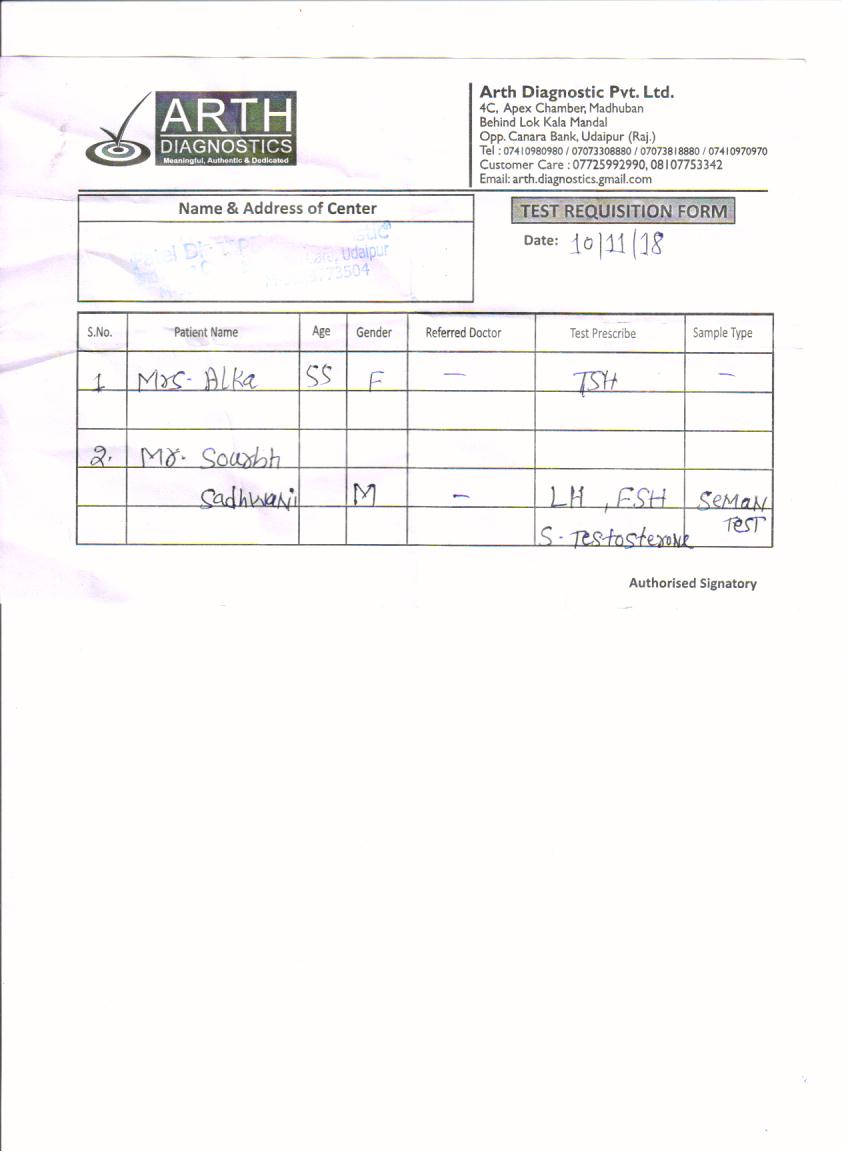 ARTH
DIAGNOSTICS
Meaningful, Authentic & Dedicated
Arth Diagnostic Pvt. Ltd.
4C, Apex Chamber, Madhuban
Behind Lok Kala Mandal
Opp. Canara Bank, Udaipur (Raj.)
Tel : 07410980980 / 07073308880 / 07073818880 / 07410970970
Customer Care : 07725992990, 08107753342
Email: arth.diagnostics.gmail.com
Name & Address of Center
TEST REQUISITION FORM
Date: 10/11/18
Udaipur
S.No. Patient Name Age Gender Referred Doctor Test Prescribe Sample Type
1 Mrs- Alka 55 F — TSH —
2. Mr. Sourbh
Sadhwani M — LH , FSH SEMAN
S - Testosterone TEST
Authorised Signatory